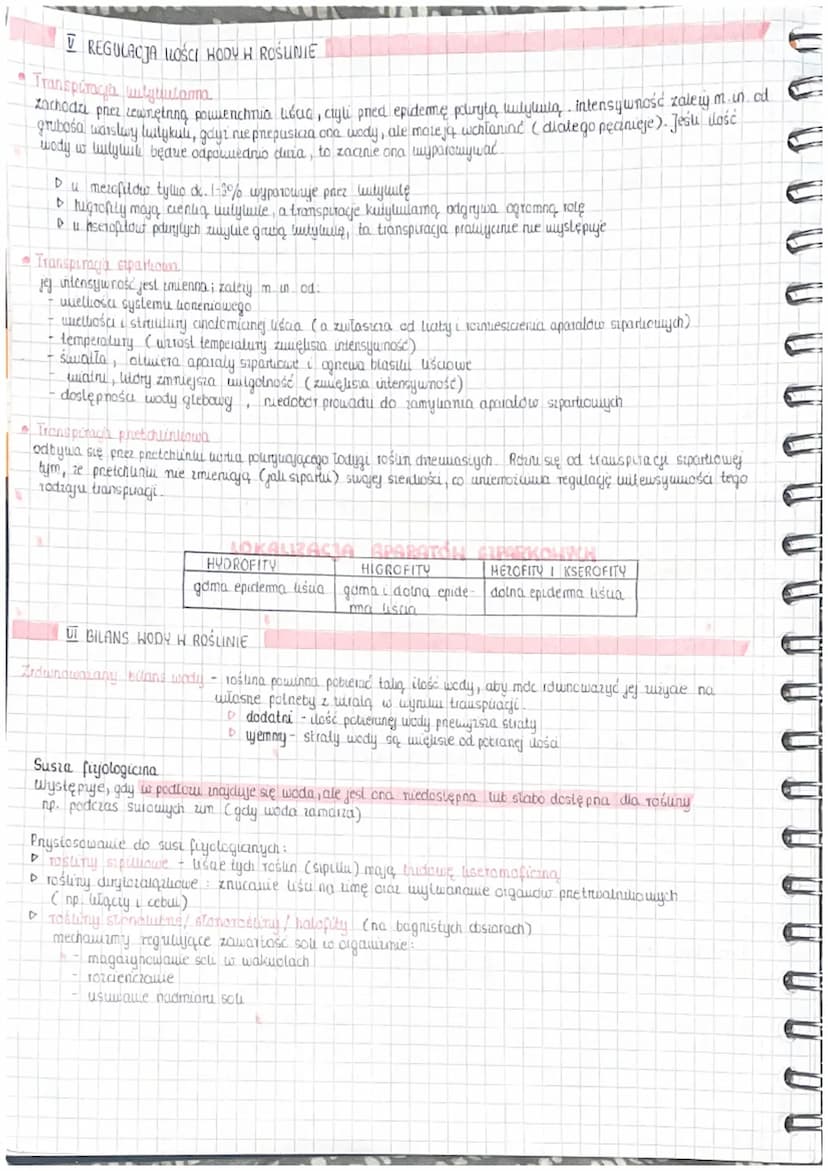 V REGULACJA ILOŚCI WODY W ROŚLINIE
• Transpiracja kutykularna
zachodzi przez zewnętrzną powierzchnię liścia, czyli przed epidermę pokrytą kutykulą. intensywność zależy m.in. od
grubości warstwy kutykuli, gdyż nie przepuszcza ona wody, ale może ją wchłaniać (dlatego pęcznieje). Jeśli ilość
wody w kutykuli będzie odpowiednio duża, to zacznie ona wyparowywać.
▷ u mezofitów tylko ok. 1-3% wyparowuje przez kutykulę
▷ higrofity mają cienką kutykulę, a transpiracja kutykularna odgrywa ogromną rolę
▷ u kserofitów pokrytych zwykle grubą kutykulą, ta transpiracja praktycznie nie występuje
• Transpiracja szparkowa
jej intensywność jest zmienna i zależy m. in. od:
- wielkości systemu korzeniowego
- wielkości i struktury anatomicznej liścia (a zwłaszcza od liczby i rozmieszczenia aparatów szparkowych)
- temperatury (wzrost temperatury zwiększa intensywność)
- światła, otwiera aparaty szparkowe i ogrzewa blaszki liściowe
- wiatru, który zmniejsza wilgotność (zwiększa intensywność)
- dostępności wody glebowej, niedobór prowadzi do zamykania aparatów szparkowych
• Transpiracja przetchlinkowa
odbywa się przez przetchlinki korka pokrywającego łodygi roślin drzewiastych. Różni się od transpiracji szparkowej
tym, że przetchlinki nie zmieniają (jak szparki) swojej szerokości, co uniemożliwia regulację intensywności tego
rodzaju transpiracji.
LOKALIZACJA APARATÓW SZPARKOWYCH
HYDROFITY HIGROFITY MEZOFITY I KSEROFITY
górna epiderma liścia górna i dolna epide- dolna epiderma liścia
rma liścia
VI BILANS WODY W ROŚLINIE
Zrównoważony bilans wody - roślina powinna pobierać taką ilość wody, aby móc równoważyć jej zużycie na
własne potrzeby z utratą w wyniku transpiracji.
▷ dodatni - ilość pobieranej wody przewyższa straty
▷ ujemny - straty wody są większe od pobranej ilości
Susza fizjologiczna
Występuje, gdy w podłożu znajduje się woda, ale jest ona niedostępna lub słabo dostępna dla rośliny
np. podczas surowych zim (gdy woda zamarza)
Przystosowanie do susz fizjologicznych:
▷ rośliny szpilkowe - liście tych roślin (szpilki) mają budowę kseromorficzną
▷ rośliny okrytozalążkowe: zrzucanie liści na zimę oraz wytwarzanie organów przetrwalnikowych
(np. kłączy i cebul)
▷ rośliny słonolubne/ słonorośliny / halofity (na bagnistych obszarach)
mechanizmy regulujące zawartość soli w organizmie:
- magazynowanie soli w wakuolach
- rozcieńczanie
- usuwanie nadmiaru soli